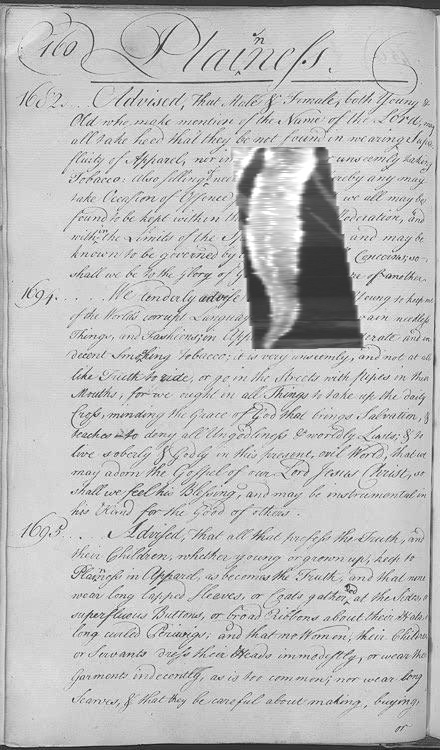 160 Plainness.
1682... Advised, That Male & Female, both Young &
Old who make mention of the Name of the Lord, may
all take heed that they be not found in wearing Super
fluity of Apparel, nor in unseemly taking
Tobacco: Also selling near whereby any may
take Occasion of Offence we all may be
found to be kept within the Moderation, and
within the Limits of the and may be
known to be governed by Concerns; so
shall we be to the Glory of of another.
1694..... We tenderly advise Young to keep out
of the World's corrupt Language vain needless
Things, and Fashions, in App and in
decent Smoking Tobacco; it is very unseemly, and not at all
like Truth to ride, or go in the Streets with pipes in their
Mouths, for we ought in all Things to take up the daily
Cross, minding the Grace of God that brings Salvation, &
teaches to deny all Ungodliness & worldly Lusts, & to
live soberly & Godly in this present, evil World, that we
may adorn the Gospel of our Lord Jesus Christ, so
shall we feel his Blessing, and may be instrumental in
his Hand for the Good of others.
1695... Advised, That all that profess the Truth, and
their Children, whether young or grown up, keep to
Plainness in Apparel, as becomes the Truth, and that none
wear long lapped Sleaves, or Coats gathered at the Sides, or
superfluous Buttons, or broad Ribbons about their Hats, or
long curled Periwigs; and that no Women, their Children
or Servants dress their Heads immodestly, or wear their
Garments indecently, as is too common; nor wear long
Scarves, & that they be careful about making, buying,
or